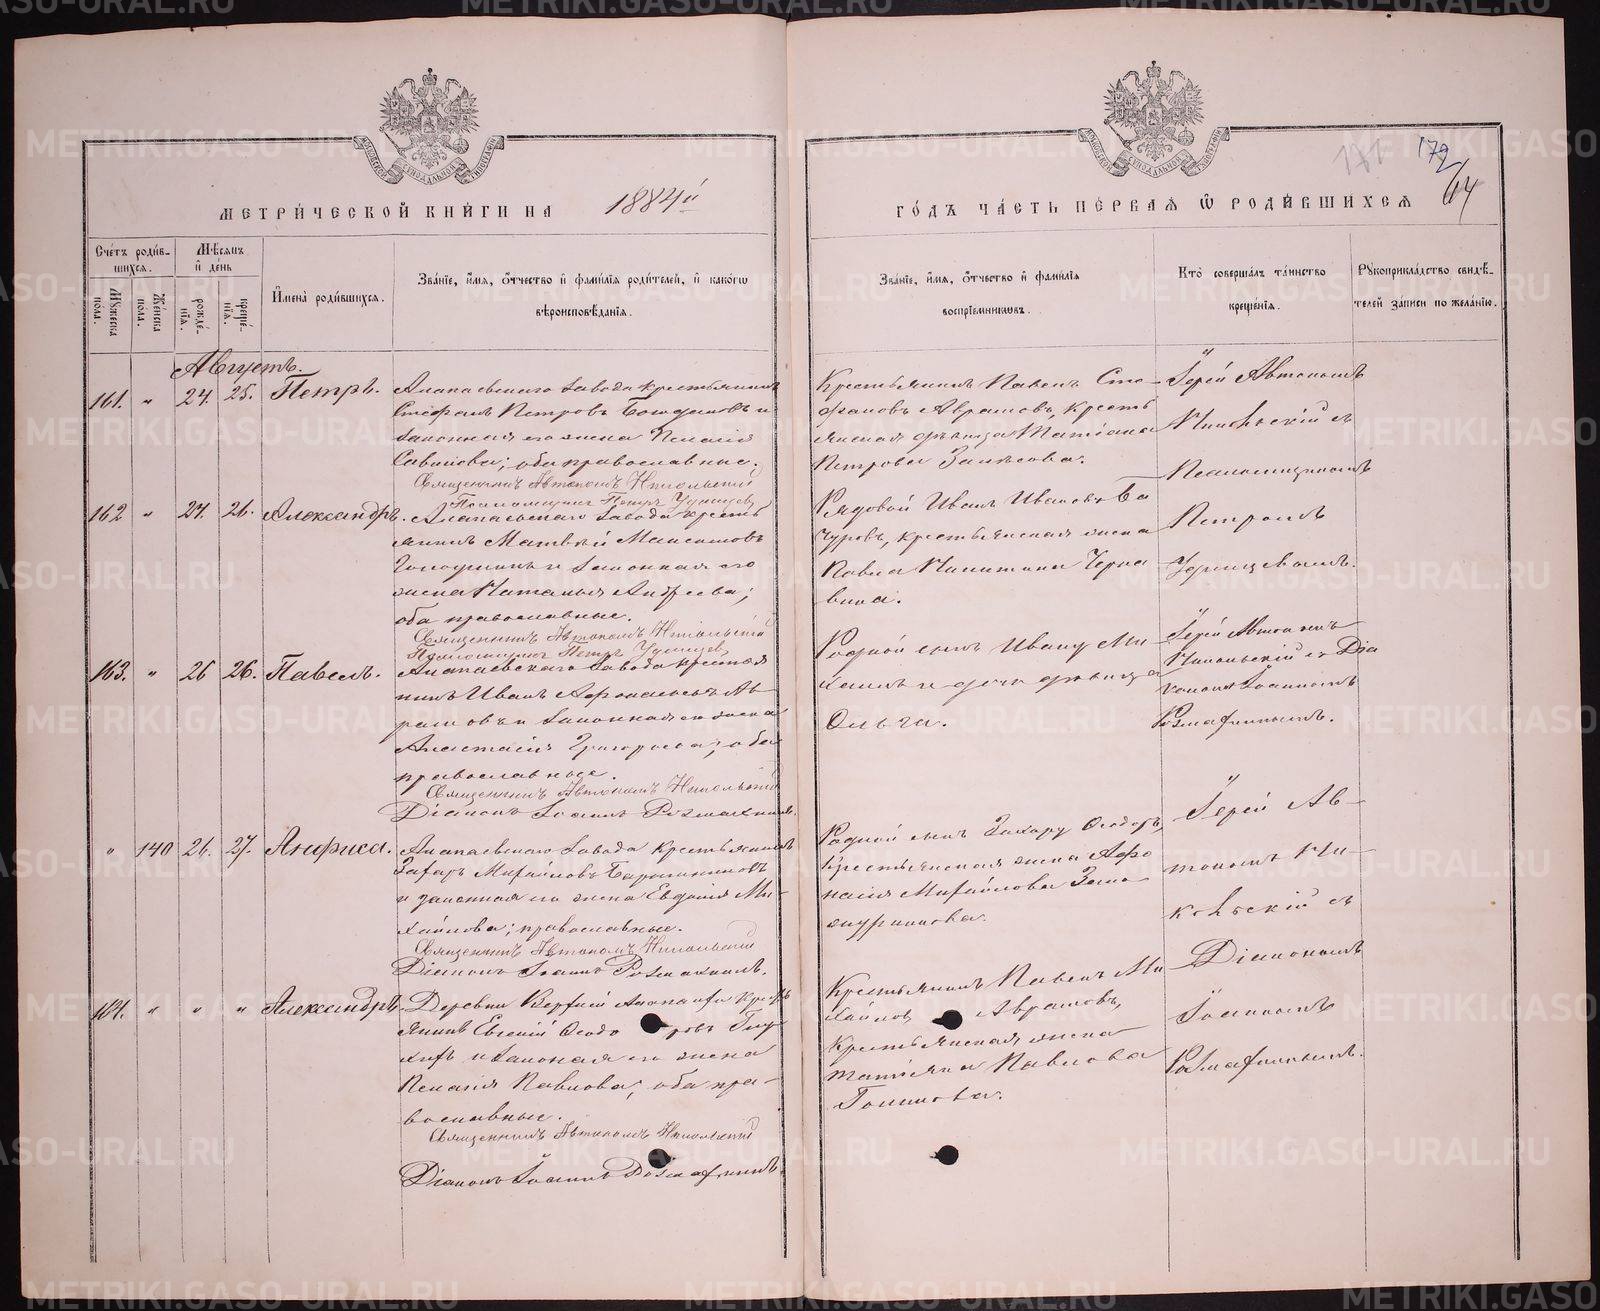 МЕТРИЧЕСКОЙ КНИГИ НА 1884й
ГОДЪ ЧАСТЬ ПЕРВАЯ Ѿ РОДИВШИХСЯ
171 172 64
Счетъ родив-
шихся.
Мѣсяцъ
и день
Мужеска
пола.
Женска
пола.
рожде-
нїя.
креще-
нїя.
Имена родившихся.
Званїе, имя, отчество и фамилїя родителей, и какогѡ
вѣроисповѣданїя.
Званїе, имя, отчество и фамилїя
воспрїемниковъ.
Кто совершалъ таинство
крещенїя.
Рукоприкладство свидѣ-
телей записи по желанїю.
Августъ.
161. " 24. 25. Петръ.
Алапаевскаго завода крестьянинъ
Стефанъ Петровъ и
законная его жена Пелагія
Савинова; оба православные.
Священникъ Автономъ Никольскій
Псаломщикъ Петръ Удинцев
Крестьянинъ Павелъ Сте-
фановъ Аврамовъ, кресть
янская дѣвица Татіана
Петрова
Іерей Автономъ
Никольскій съ
Псаломщикомъ
Петромъ
Удинцевымъ.
162 " 24. 26. Александръ.
Алапаевскаго завода кресть
янинъ Матвѣй Максимовъ
и законная его
жена Наталья Андреева;
оба православные.
Священникъ Автономъ Никольскій
Псаломщикъ Петръ Удинцев
Рядовой Иванъ Ивановъ Ва
чуровъ, крестьянская жена
Павла Никитина
163. " 26 26. Павелъ.
Алапаевскаго завода крестья
нинъ Иванъ Афонасьевъ Ав
рамовъ и законная его жена
Анастасія Григорьева; оба
православные.
Священникъ Автономъ Никольскій
Діаконъ Іоаннъ
Родной сынъ Ивану Ми
хаилъ и дочь дѣвица
Ольга.
Іерей Автономъ
Никольскій съ Діа
кономъ Іоанномъ
" 140 26. 27. Анфиса.
Алапаевскаго завода крестьянинъ
Захаръ Михайловъ
и законная его жена Евдокія Ми-
хайлова; православные.
Священникъ Автономъ Никольскій
Діаконъ Іоаннъ
Родной сынъ Захару Ѳеодоръ,
крестьянская жена Афо
насія Михайлова
Іерей Ав-
тономъ Ни-
кольскій съ
Діакономъ
Іоанномъ
164. " " " Александръ.
Деревни Верхней Алапаихи кресть
янинъ Евгеній Ѳеодоровъ
и законная его жена
Пелагія Павлова; оба пра-
вославные.
Священникъ Автономъ Никольскій
Діаконъ Іоаннъ
Крестьянинъ Павелъ Ми
хайловъ Аврамовъ,
крестьянская жена
Татіяна Павлова
METRIKI.GASO-URAL.RU